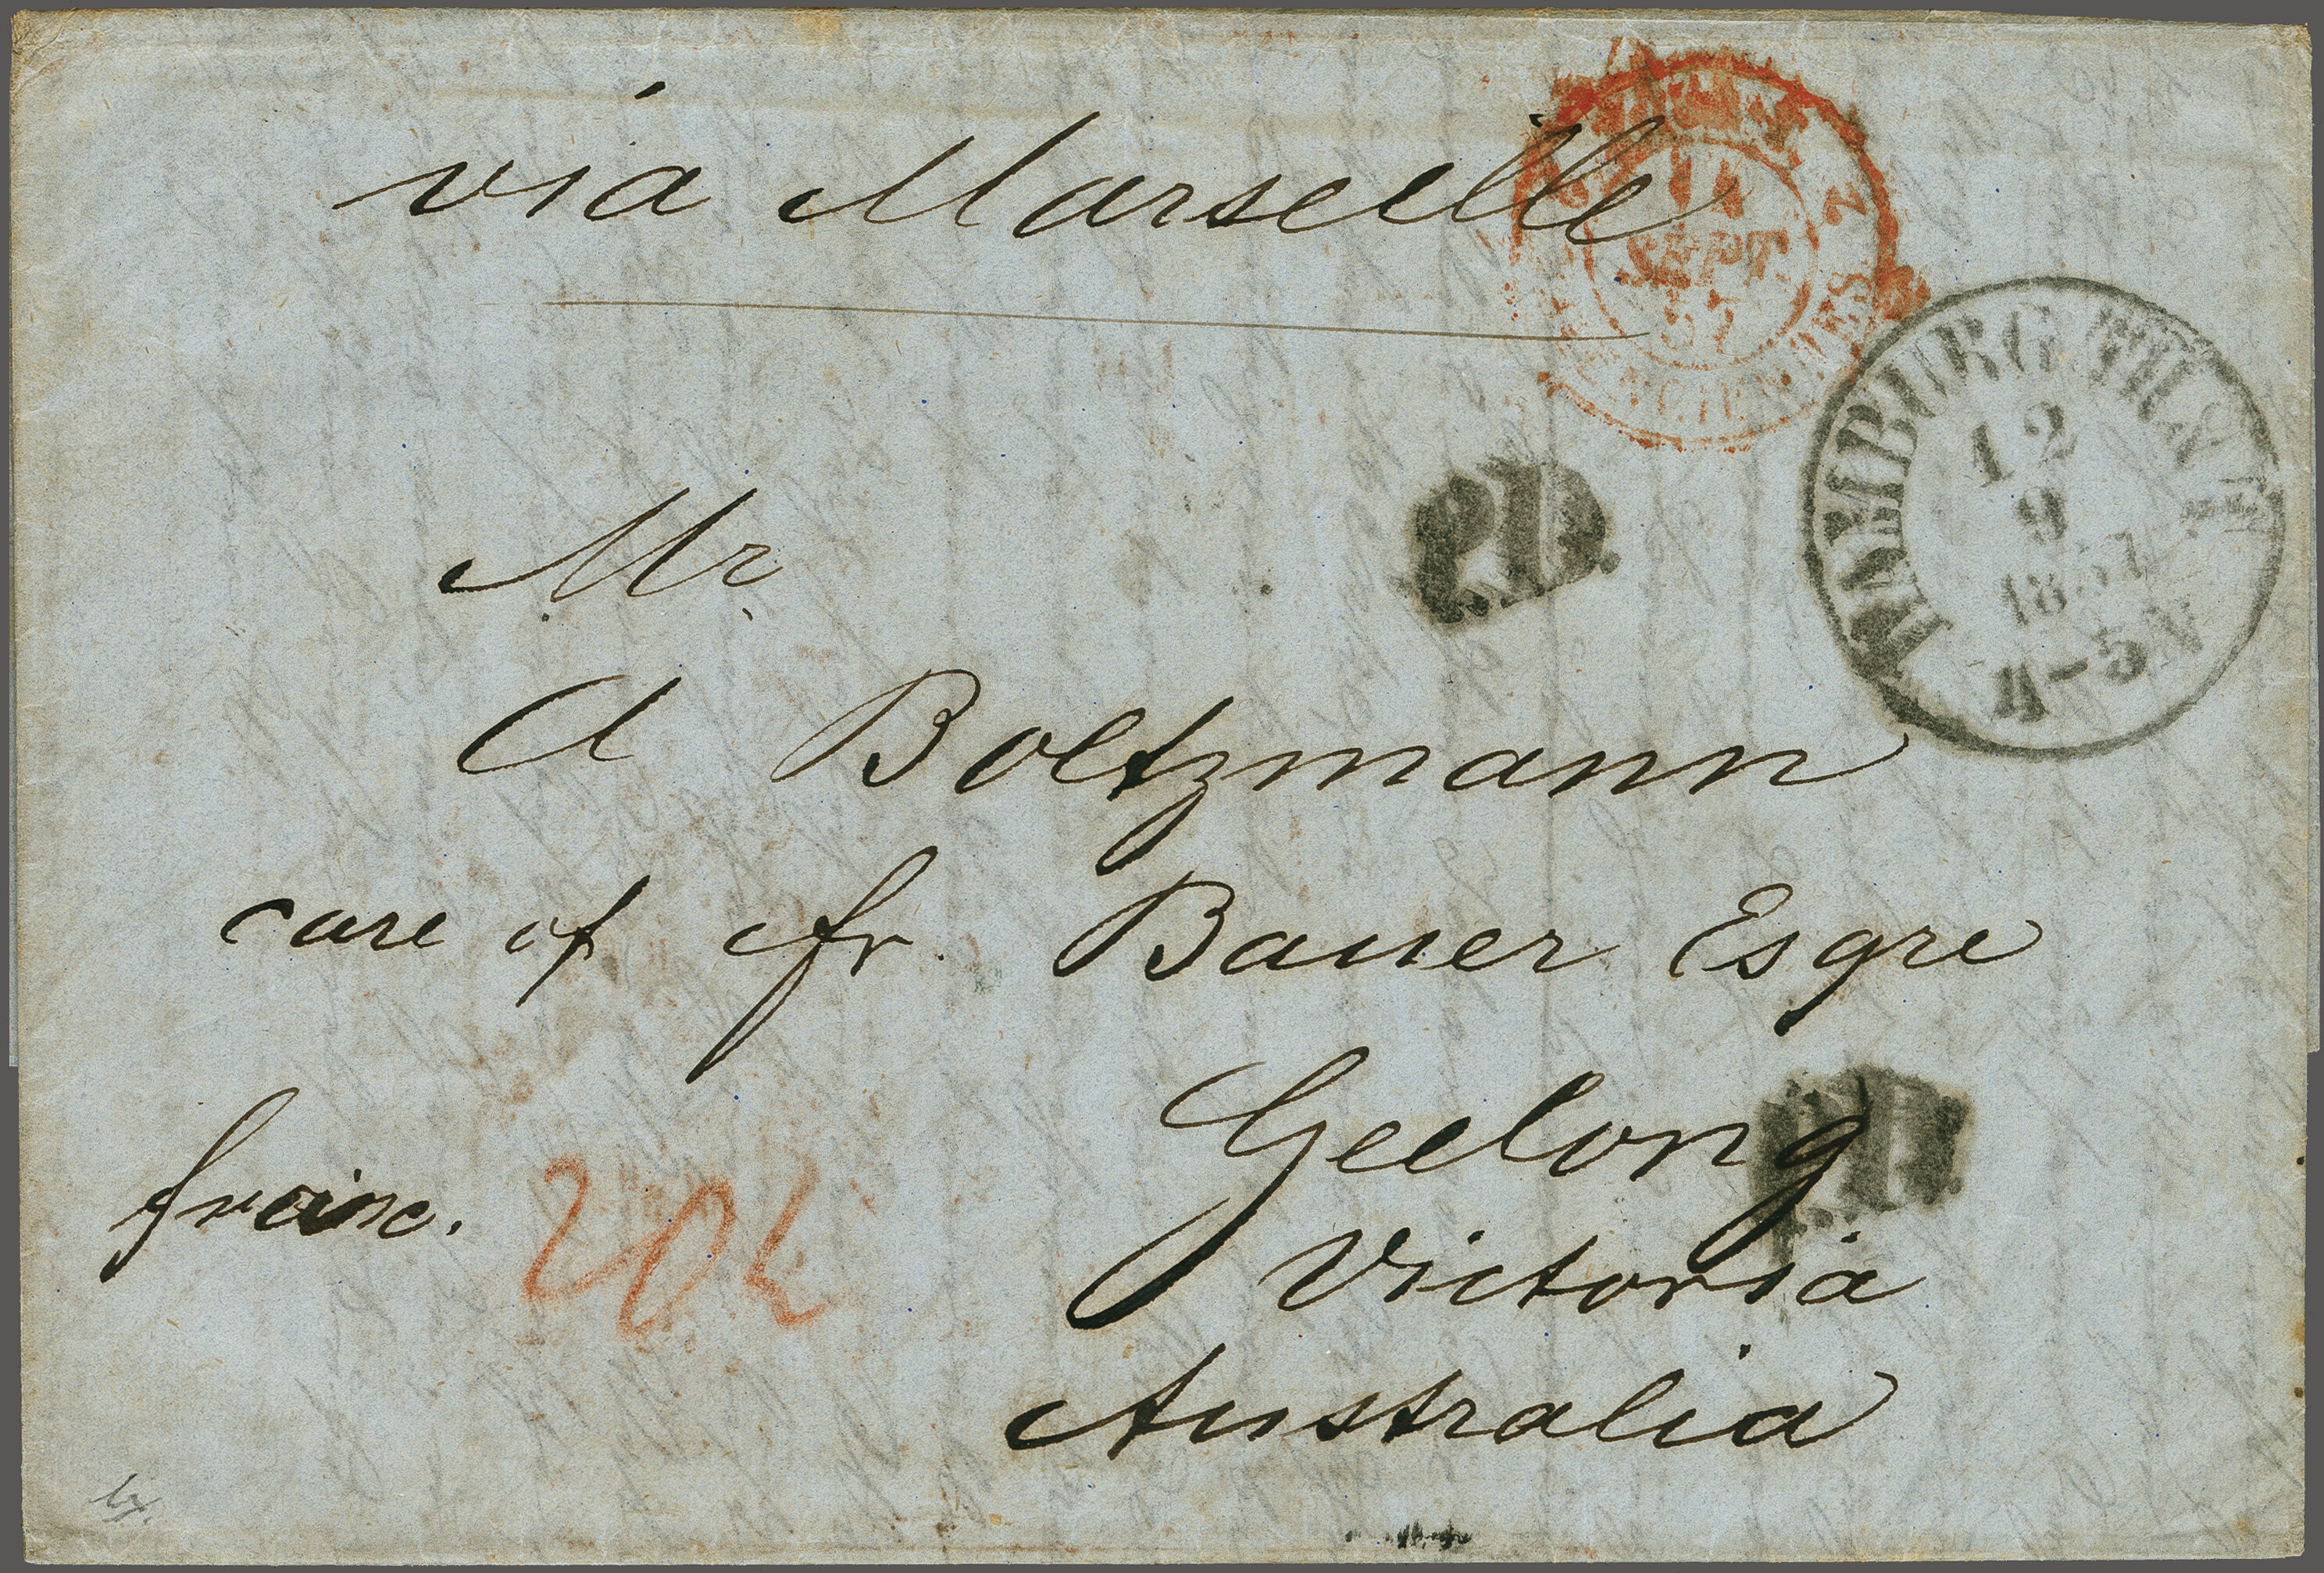 via Marseille
14
SEPT.
57
HAMBURG TH.
12
9
1857
4-5N
P.D.
Mr
A Boltzmann
care of Fr. Bauer Esqre
Geelong
P.D.
franc.
Victoria
Australia